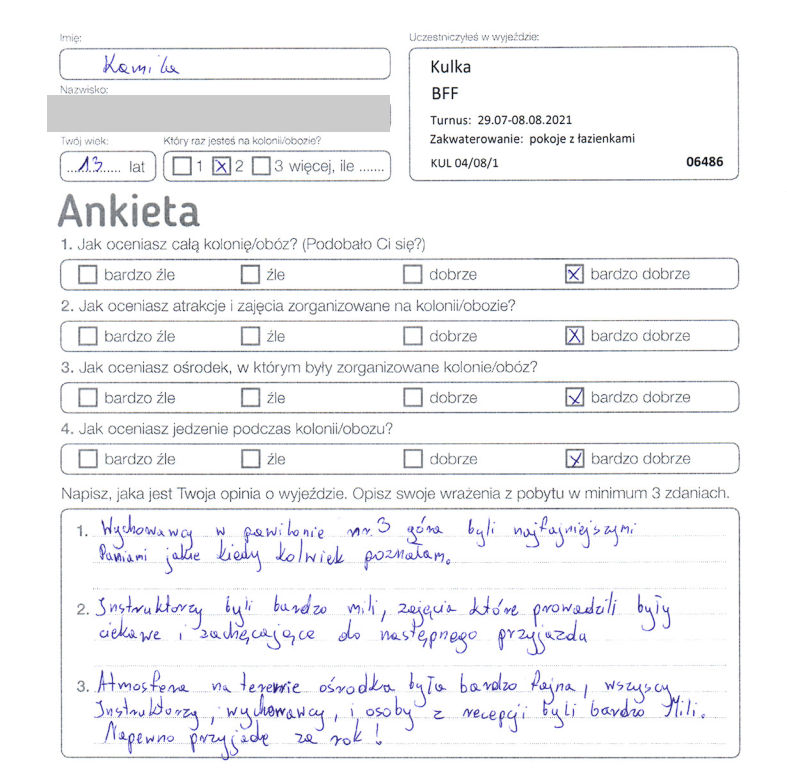 Imię:
Kamila
Nazwisko:
Twój wiek:
13 lat
Który raz jesteś na kolonii/obozie?
1 2 3 więcej, ile .......
Uczestniczyłeś w wyjeździe:
Kulka
BFF
Turnus: 29.07-08.08.2021
Zakwaterowanie: pokoje z łazienkami
KUL 04/08/1 06486
Ankieta
1. Jak oceniasz całą kolonię/obóz? (Podobało Ci się?)
bardzo źle źle dobrze bardzo dobrze
2. Jak oceniasz atrakcje i zajęcia zorganizowane na kolonii/obozie?
bardzo źle źle dobrze bardzo dobrze
3. Jak oceniasz ośrodek, w którym były zorganizowane kolonie/obóz?
bardzo źle źle dobrze bardzo dobrze
4. Jak oceniasz jedzenie podczas kolonii/obozu?
bardzo źle źle dobrze bardzo dobrze
Napisz, jaka jest Twoja opinia o wyjeździe. Opisz swoje wrażenia z pobytu w minimum 3 zdaniach.
1. Wychowawcy w pawilonie nr.3 góra byli najfajniejszymi
Paniami jakie kiedy kolwiek poznałam.
2. Instruktorzy byli bardzo mili, zajęcia które prowadzili były
ciekawe i zachęcające do następnego przyjazdu
3. Atmosfera na terenie ośrodka była bardzo fajna, wszyscy
Instruktorzy, wychowawcy, i osoby z recepcji byli bardzo Mili.
Napewno przyjadę za rok!